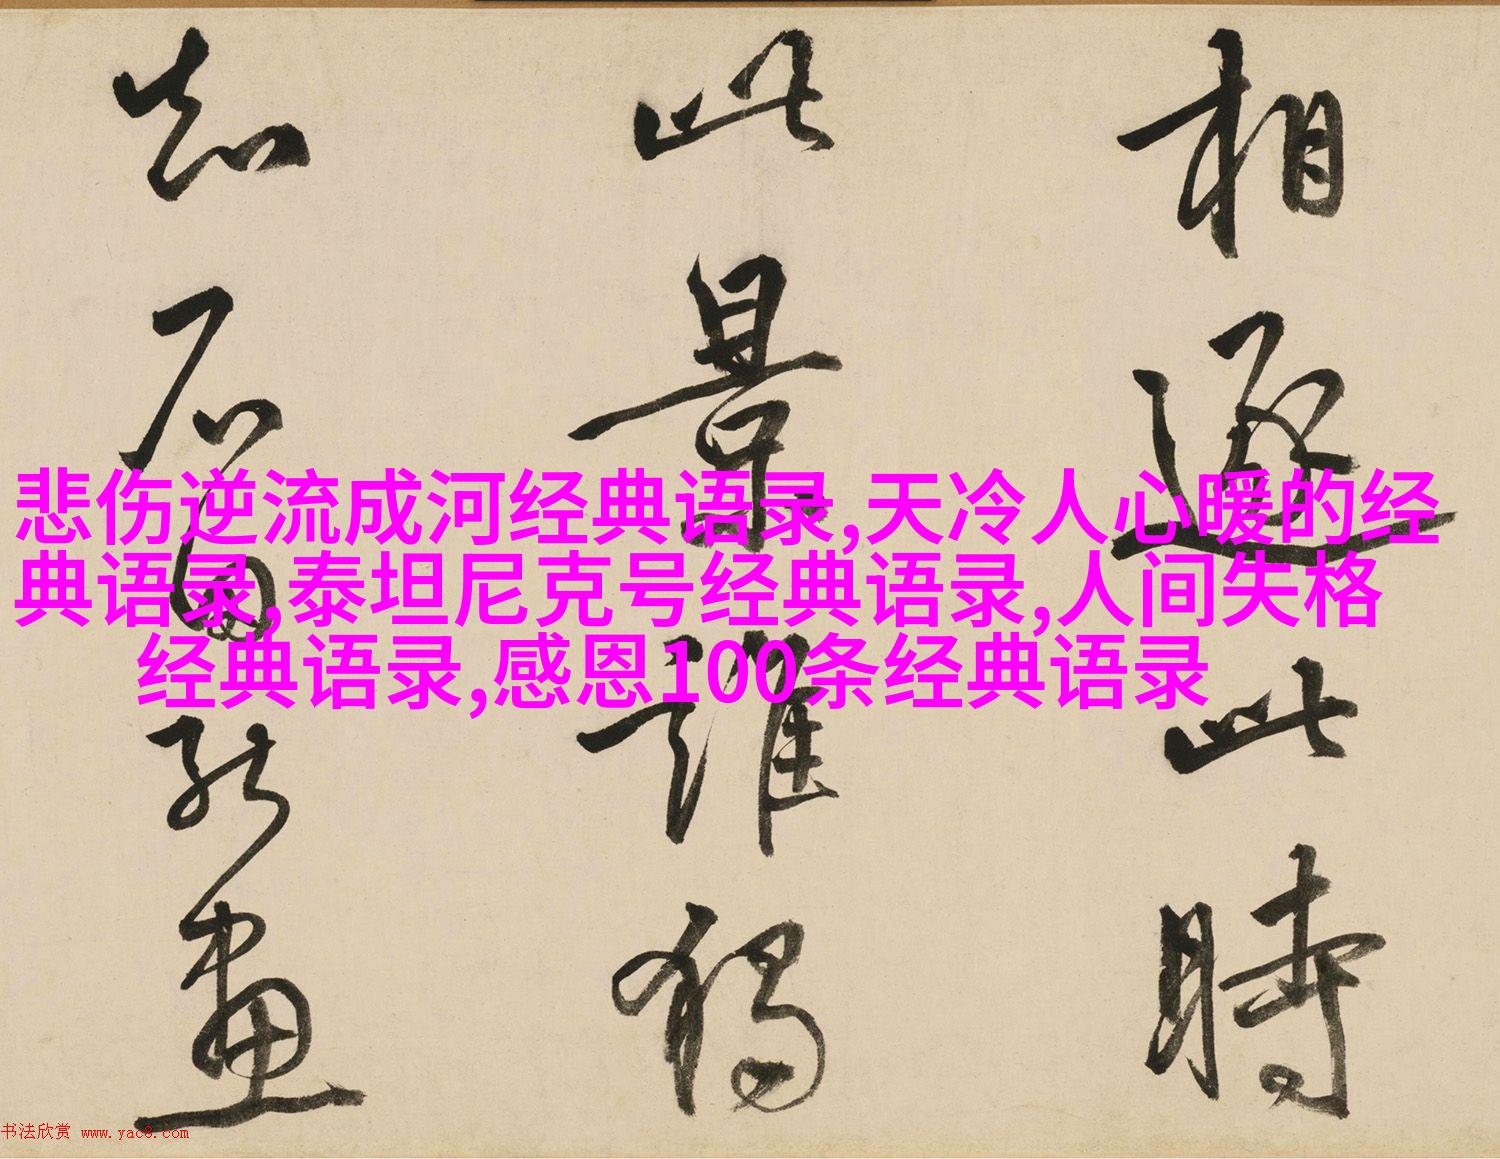 相逐此時
此景誰獨
知石田能畫
悲伤逆流成河经典语录,天冷人心暖的经
典语录,泰坦尼克号经典语录,人间失格
经典语录,感恩100条经典语录
书法欣赏 www.yac8.com